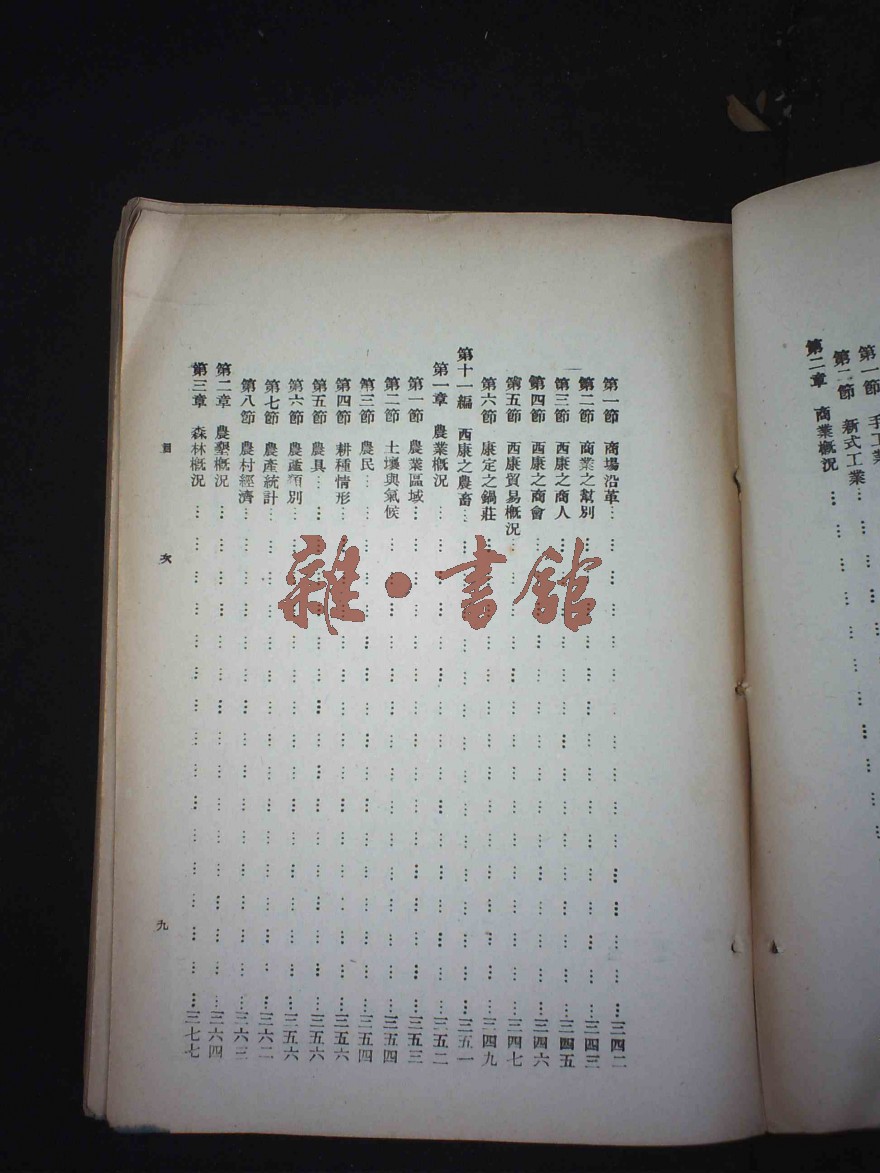 第一節 手工業
第二節 新式工業
第二章 商業概況
第一節 商場沿革 三四二
第二節 商業之幫別 三四三
第三節 西康之商人 三四五
第四節 西康之商會 三四六
第五節 西康貿易概況 三四七
第六節 康定之鍋莊 三四九
第十一編 西康之農畜 三五一
第一章 農業概況 三五二
第一節 農業區域 三五三
第二節 土壤與氣候 三五四
第三節 農民 三五四
第四節 耕種情形 三五六
第五節 農具 三五六
第六節 農產類別 三五六
第七節 農產統計 三六二
第八節 農村經濟 三六三
第二章 農墾概況 三六四
第三章 森林概況 三七七
目 次 九
雜·書館